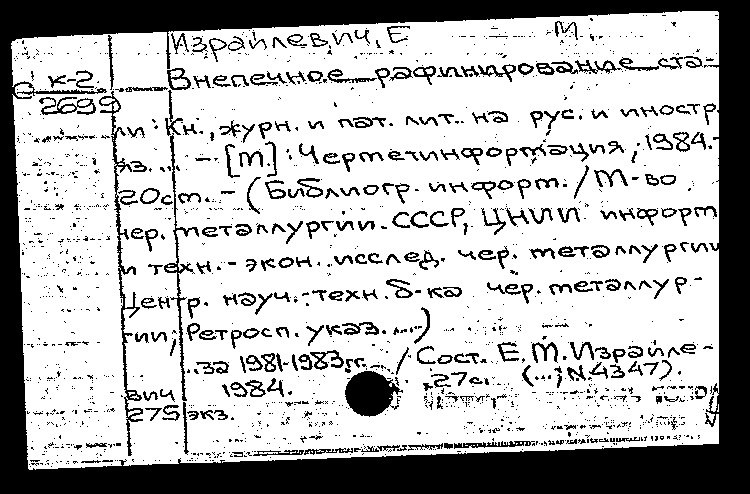 Израйлевич, Е М.
С к-2 Внепечное рафинирование ста-
2699
ли: Кн., журн. и пат. лит. на рус. и иностр.
яз. ... - [М.]: Черметинформация, 1984.-
20см. - (Библиогр. информ. / М-во
чер. металлургии СССР, ЦНИИ информ
и техн.-экон. исслед. чер. металлургии
Центр. науч.-техн. б-ка чер. металлур-
гии; Ретросп. указ. ...)
...за 1981-1983гг. / Сост. Е.М. Израйле-
вич 1984. 27с. (...; N4347).
275 экз.